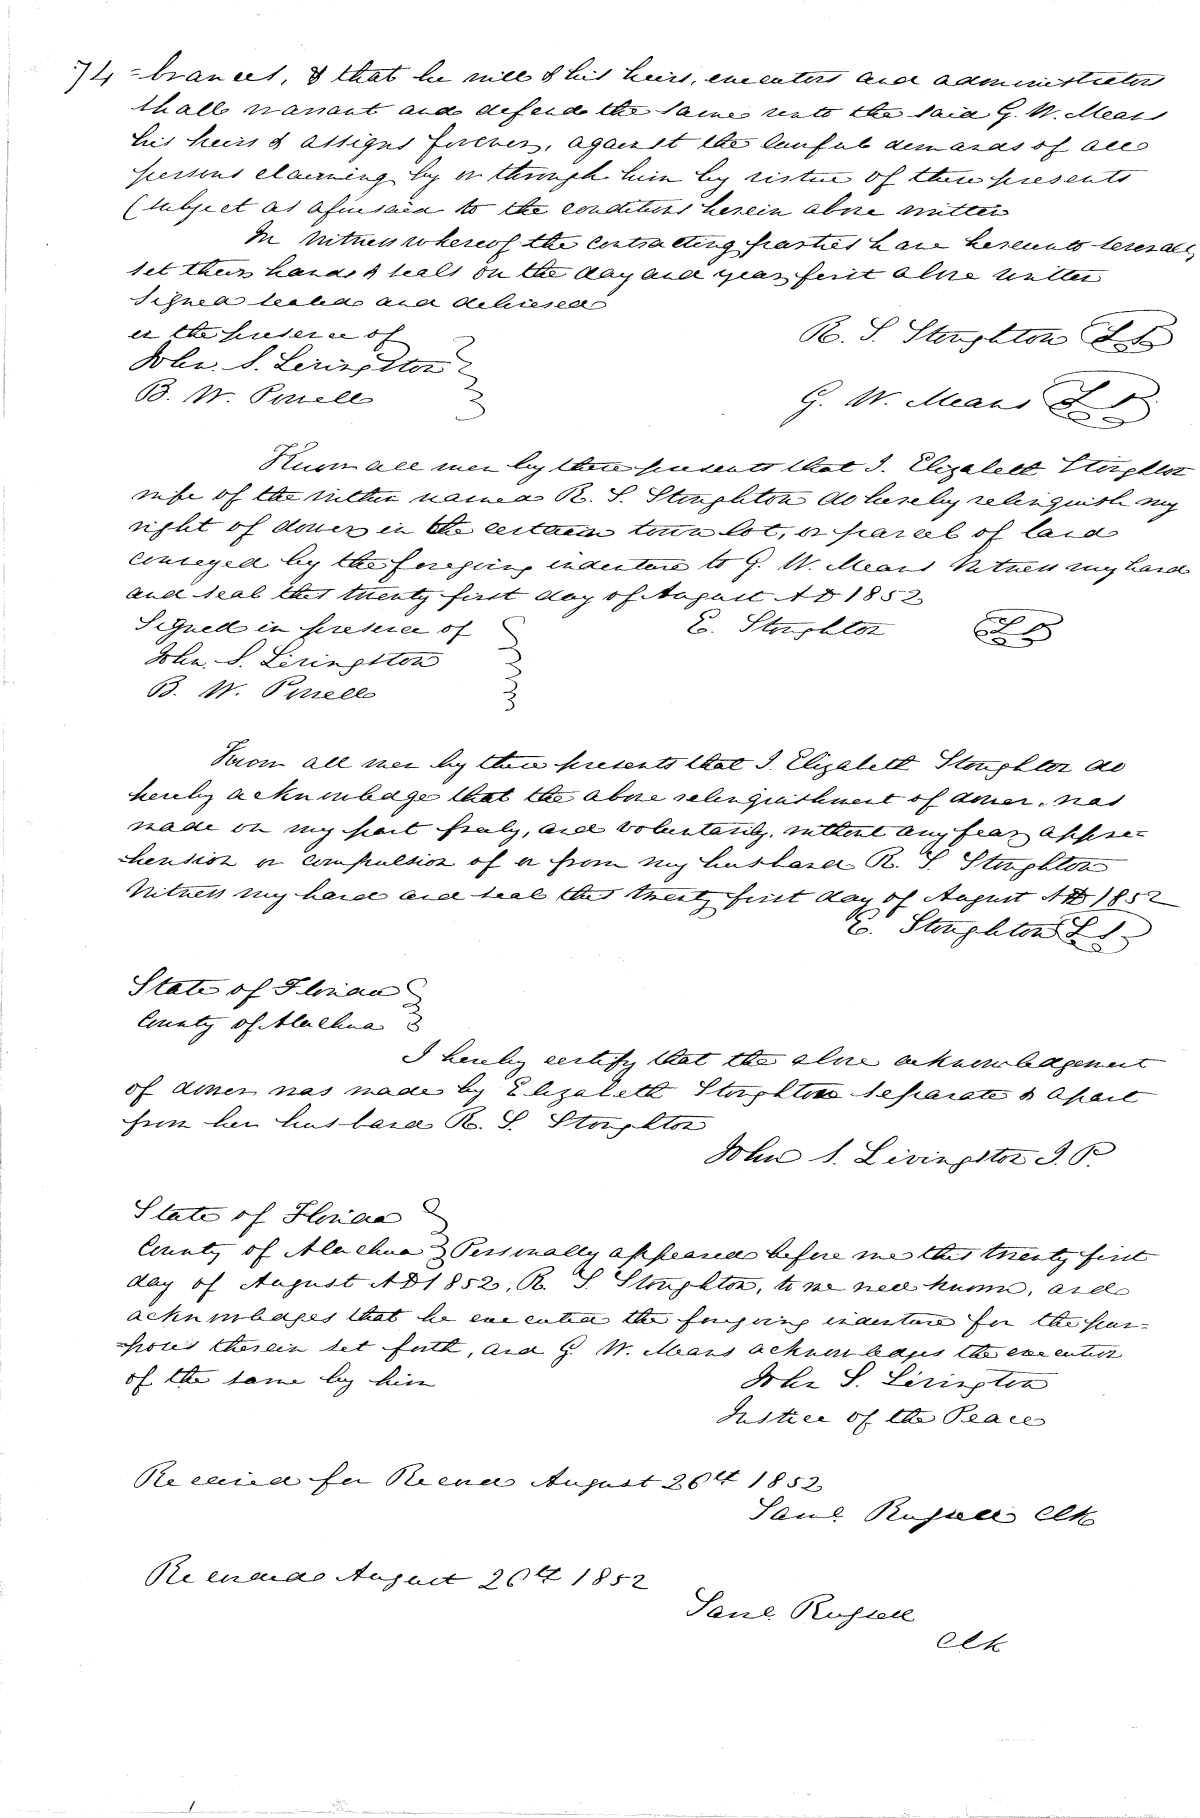 74 =brances, & that he will & his heirs, executors and administrators
shall warrant and defend the same unto the said G. W. Means
his heirs & assigns forever, against the lawful demands of all
persons claiming by or through him by virtue of these presents
(subject as aforesaid to the conditions herein above written
In Witness whereof the contracting parties have hereunto
set their hands & seals on the day and year first above written
Signed sealed and delivered
in the presence of
R. S. Stoughton LS
John. S. Livingston
B. W. Powell
G. W. Means LS
Know all men by these presents that I. Elizabeth Stoughton
wife of the within named R. S. Stoughton do hereby relinquish my
right of dower in the certain town lot, or parcel of land
conveyed by the foregoing indenture to G. W. Means Witness my hand
and seal this twenty first day of August A D 1852
Signed in presence of E. Stoughton LS
John. S. Livingston
B. W. Powell
Know all men by these presents that I. Elizabeth Stoughton do
hereby acknowledge that the above relinquishment of dower. was
made on my part freely, and voluntarily. without any fear appre=
=hension or compulsion of or from my husband R. S. Stoughton
Witness my hand and seal this twenty first day of August AD 1852
E. Stoughton LS
State of Florida
County of Alachua
I hereby certify that the above acknowledgement
of dower was made by Elizabeth Stoughton separate & apart
from her husband R. S. Stoughton
John S. Livingston J. P.
State of Florida
County of Alachua Personally appeared before me this twenty first
day of August AD 1852, R. S. Stoughton, to me well known, and
acknowledges that he executed the foregoing indenture for the pur=
=poses therein set forth, and G W. Means acknowledges the execution
of the same by him
John S. Livingston
Justice of the Peace
Received for Record August 26th 1852
Saml. Russell Clk
Recorded August 26th 1852
Saml. Russell
Clk